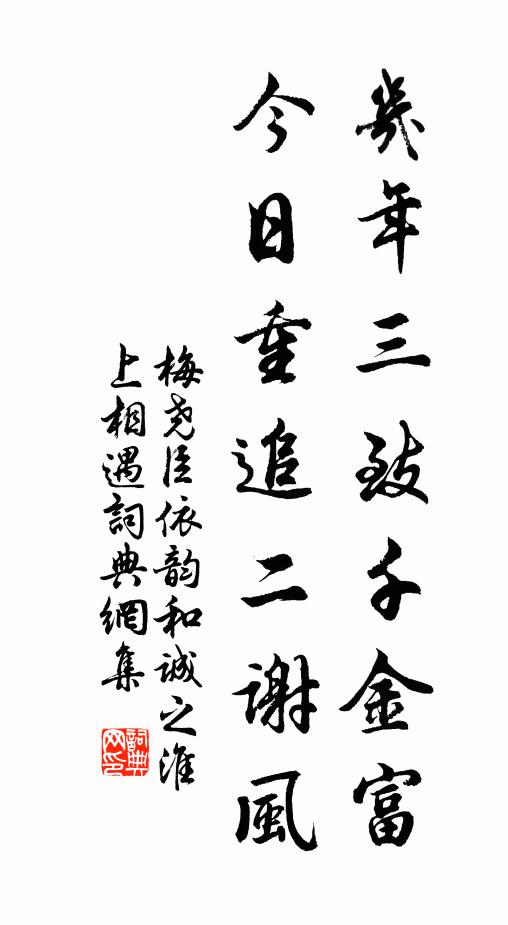 幾年三致千金富
今日重追二谢風
梅尧臣依韵和诚之淮
上相遇詞典網集
詞典
网印